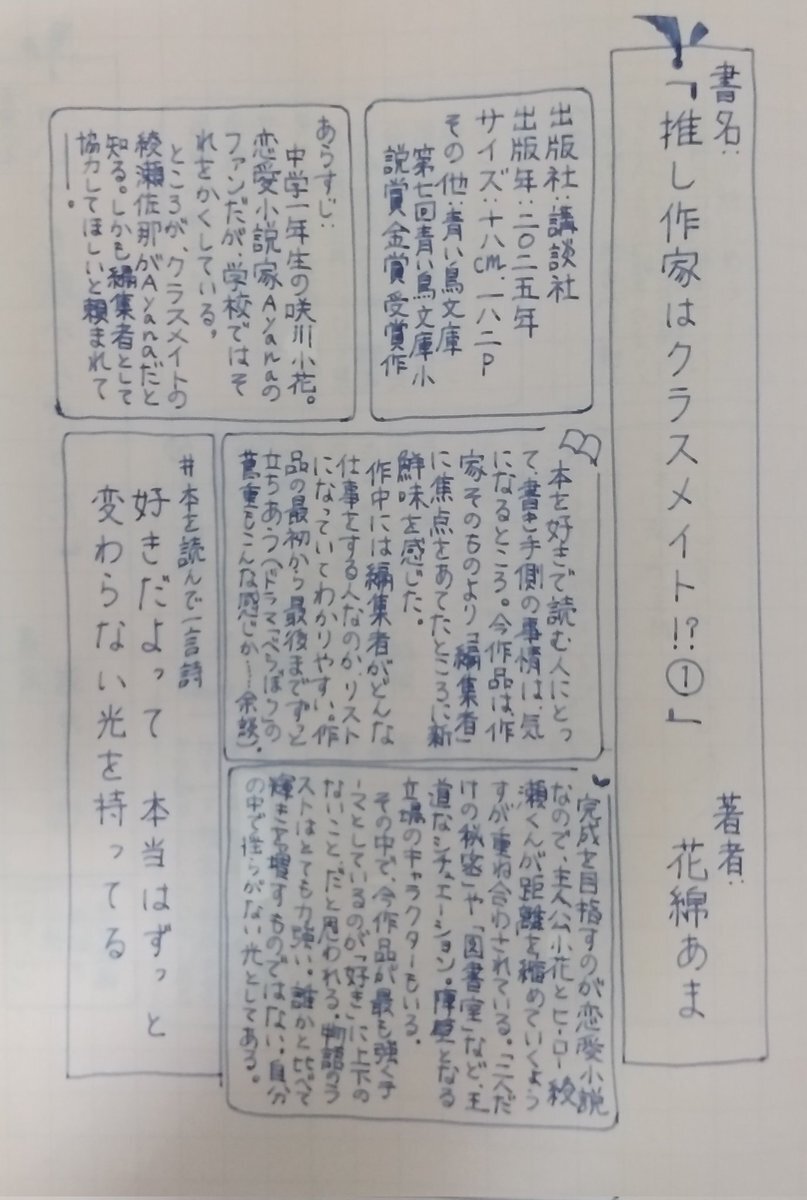 書名:
「推し作家はクラスメイト!?①」
著者:
花綿あま
出版社:講談社
出版年:二〇二五年
サイズ:十八cm.一八二P
その他:青い鳥文庫
第七回青い鳥文庫小
説賞金賞受賞作
あらすじ:
中学一年生の咲川小花。
恋愛小説家Ayanaの
ファンだが、学校ではそ
れをかくしている。
ところが、クラスメイトの
綾瀬佐那がAyanaだと
知る。しかも編集者として
協力してほしいと頼まれて
―。
本を好きで読む人にとっ
て、書き手側の事情は、気
になるところ。今作品は、作
家そのものより「編集者」
に焦点をあてたところに新
鮮味を感じた。
作中には編集者がどんな
仕事をする人なのか、リスト
になっていてわかりやすい。作
品の最初から最後までずっと
立ちあう(ドラマ「べらぼう」の
蔦重もこんな感じか―余談)。
完成を目指すのが恋愛小説
なので、主人公小花とヒーロー綾
瀬くんが距離を縮めていくよう
すが重ね合わされている。「二人だ
けの秘密」や「図書室」など、王
道なシチュエーション。障壁となる
立場のキャラクターもいる。
その中で、今作品が最も強くテ
ーマとしているのが「好き」に上下の
ないこと、だと思われる。物語のラ
ストはとても力強い。誰かと比べて
輝き
するものではない。自分
の中で揺らがない光としてある。
#本を読んで一言詩
好きだよって 本当はずっと
変わらない光を持ってる